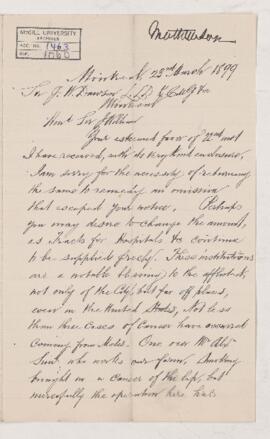 McGILL UNIVERSITY
ARCHIVES
ACC. NO. 1463
REF. 1060
Montreal, 23rd March 1899
Sir J. W. Dawson L.L.D. &c
Montreal
Hon'd Sir William
Your esteemed favor of 22nd inst
I have received, with its very kind enclosure,
I am sorry for the necessity of returning
the same to remedy an omission
that escaped your notice. Perhaps
you may desire to change the amount,
as Tracts for Hospitals &c continue
to be supplied freely. These institutions
are a notable blessing to the afflicted,
not only of the City, but far off places,
even in the United States, Not less
than three cases of Cancer have
coming from Metis. One our Mr
who works our farm,
brought in a cancer of the lip, but
mercifully the operation here has